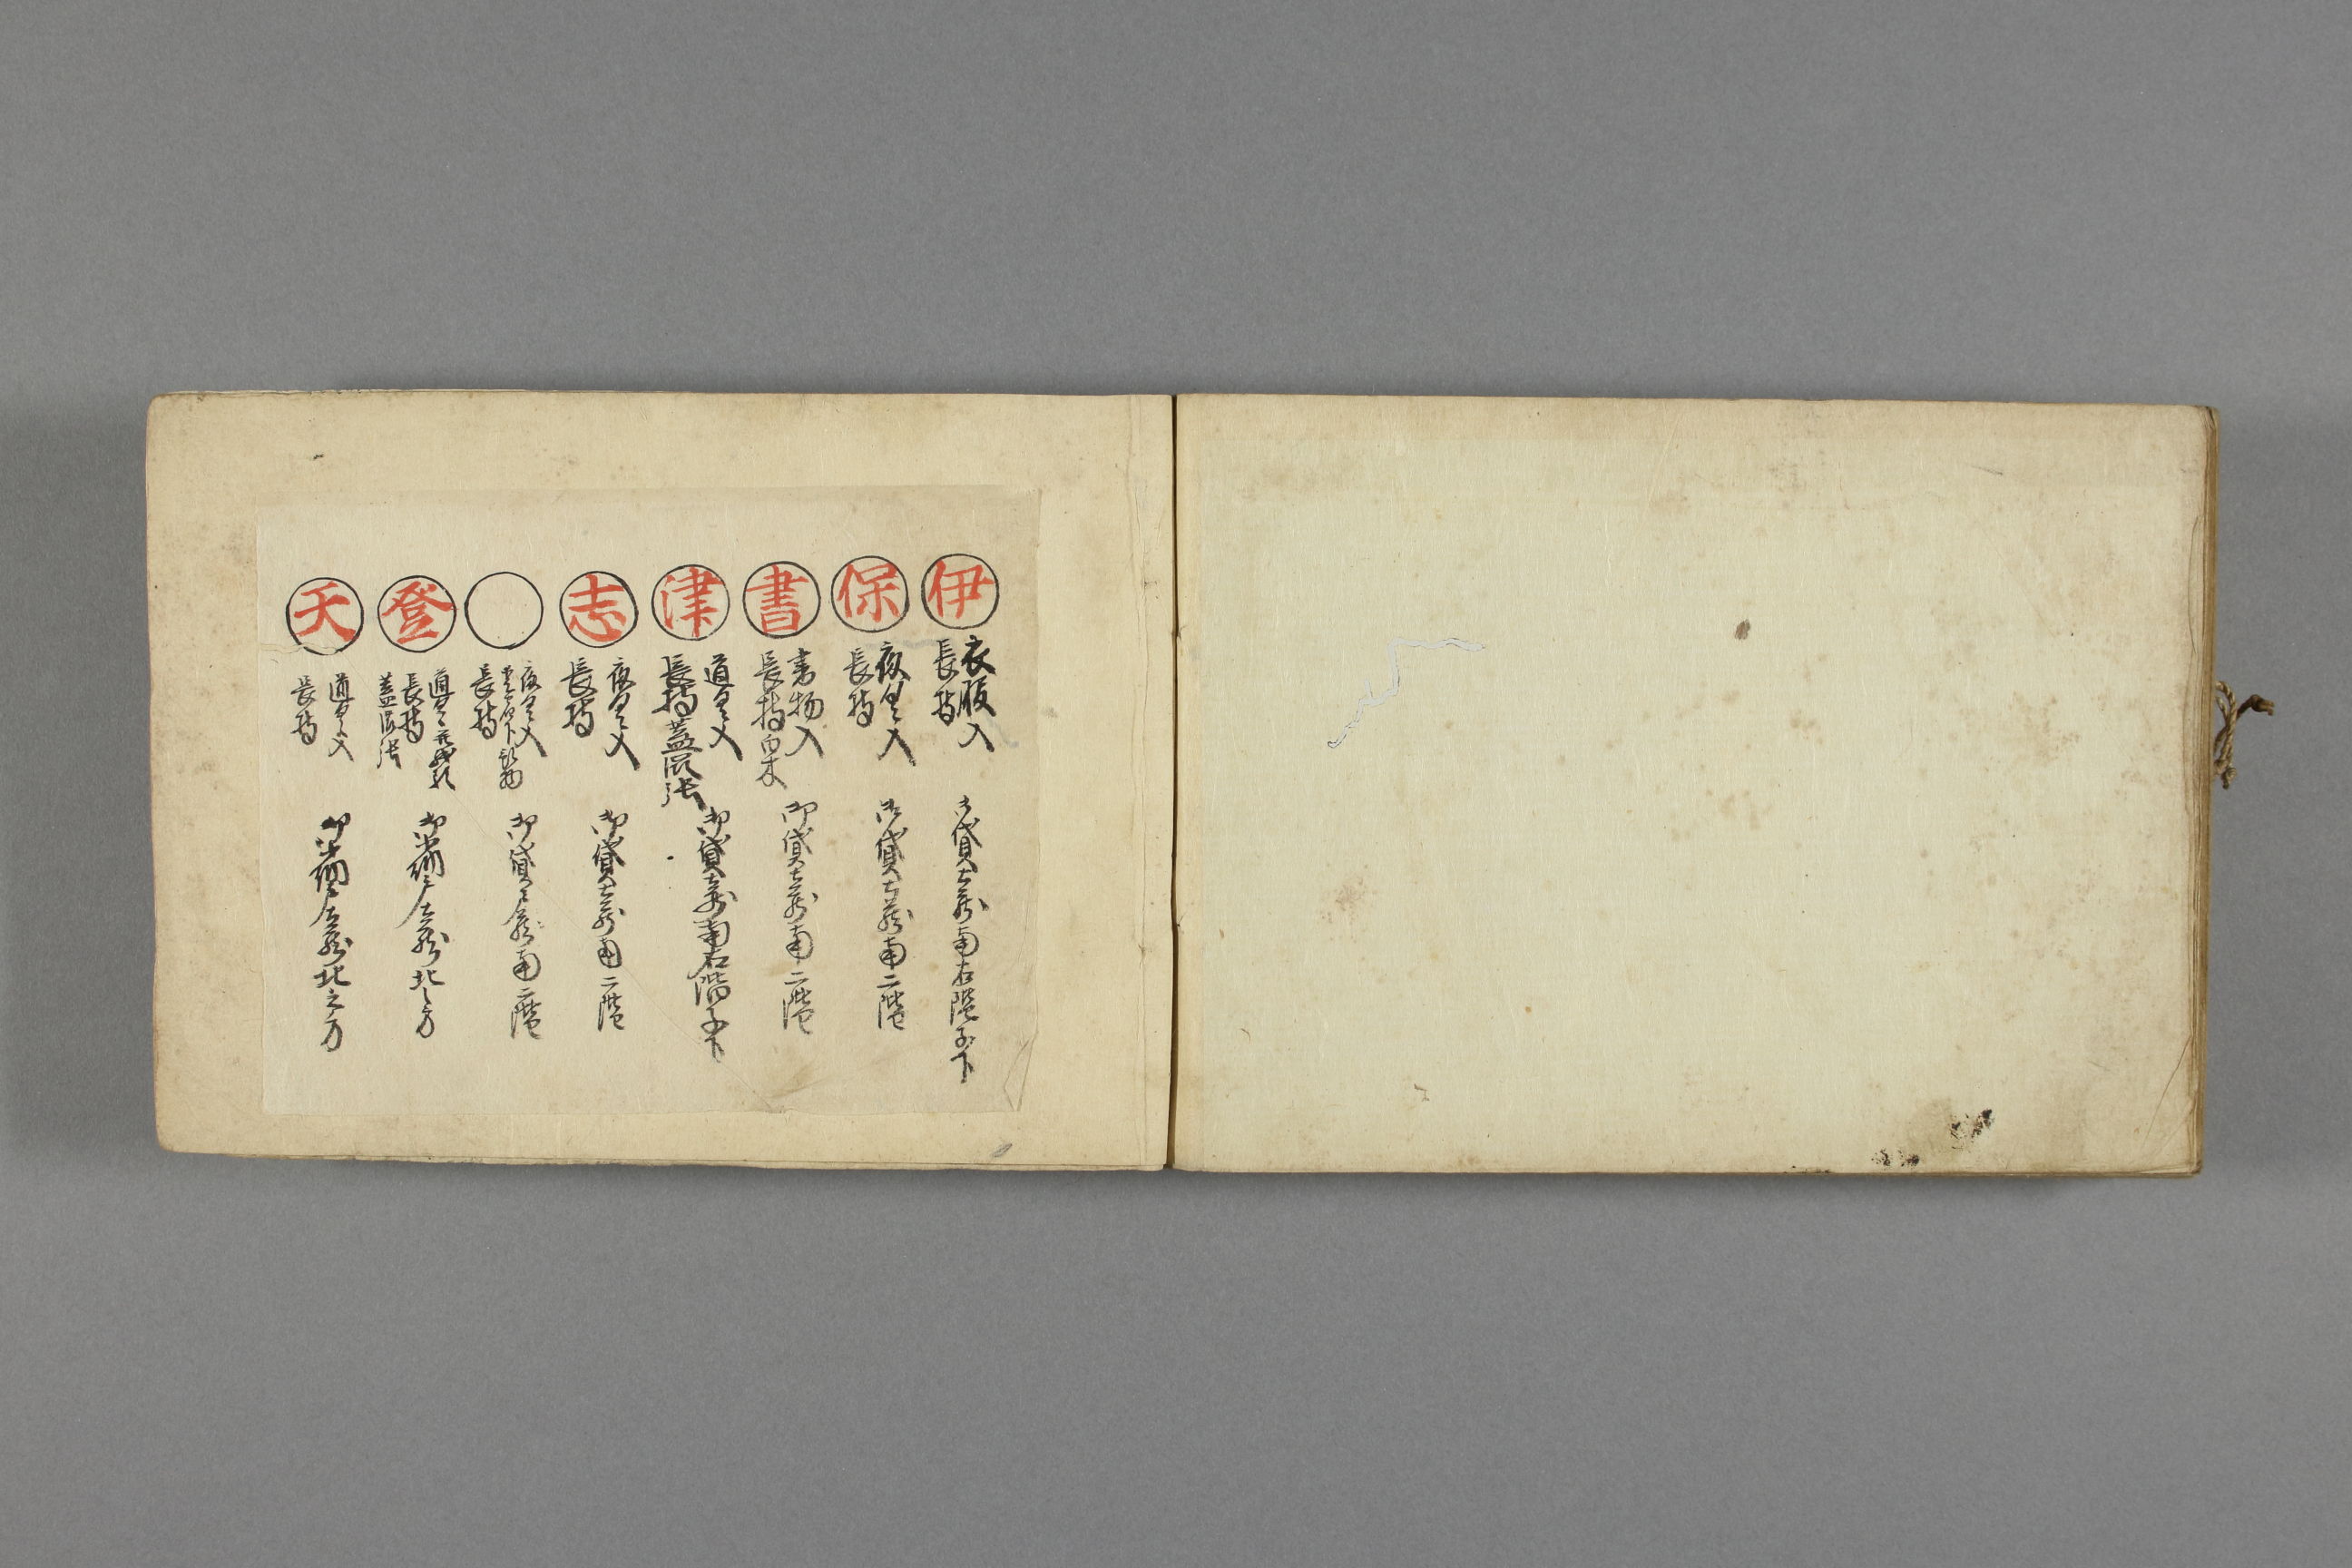 伊
衣服入
長持
御貸土蔵南右階子下
保
夜具入
長持
御貸土蔵南二階
書
書物入
長持白木
御貸土蔵南二階
津
道具入
長持蓋渋張
御貸土蔵南右階子下
志
夜具入
長持
御貸土蔵南二階
夜具入
長持
御貸土蔵南二階
登
道具
長持
蓋渋張
御納戸土蔵北之方
天
道具入
長持
御納戸土蔵北之方